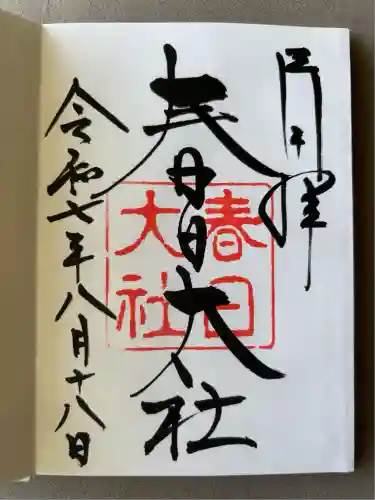 奉拝
春日大社
春日大社
令和七年八月十八日